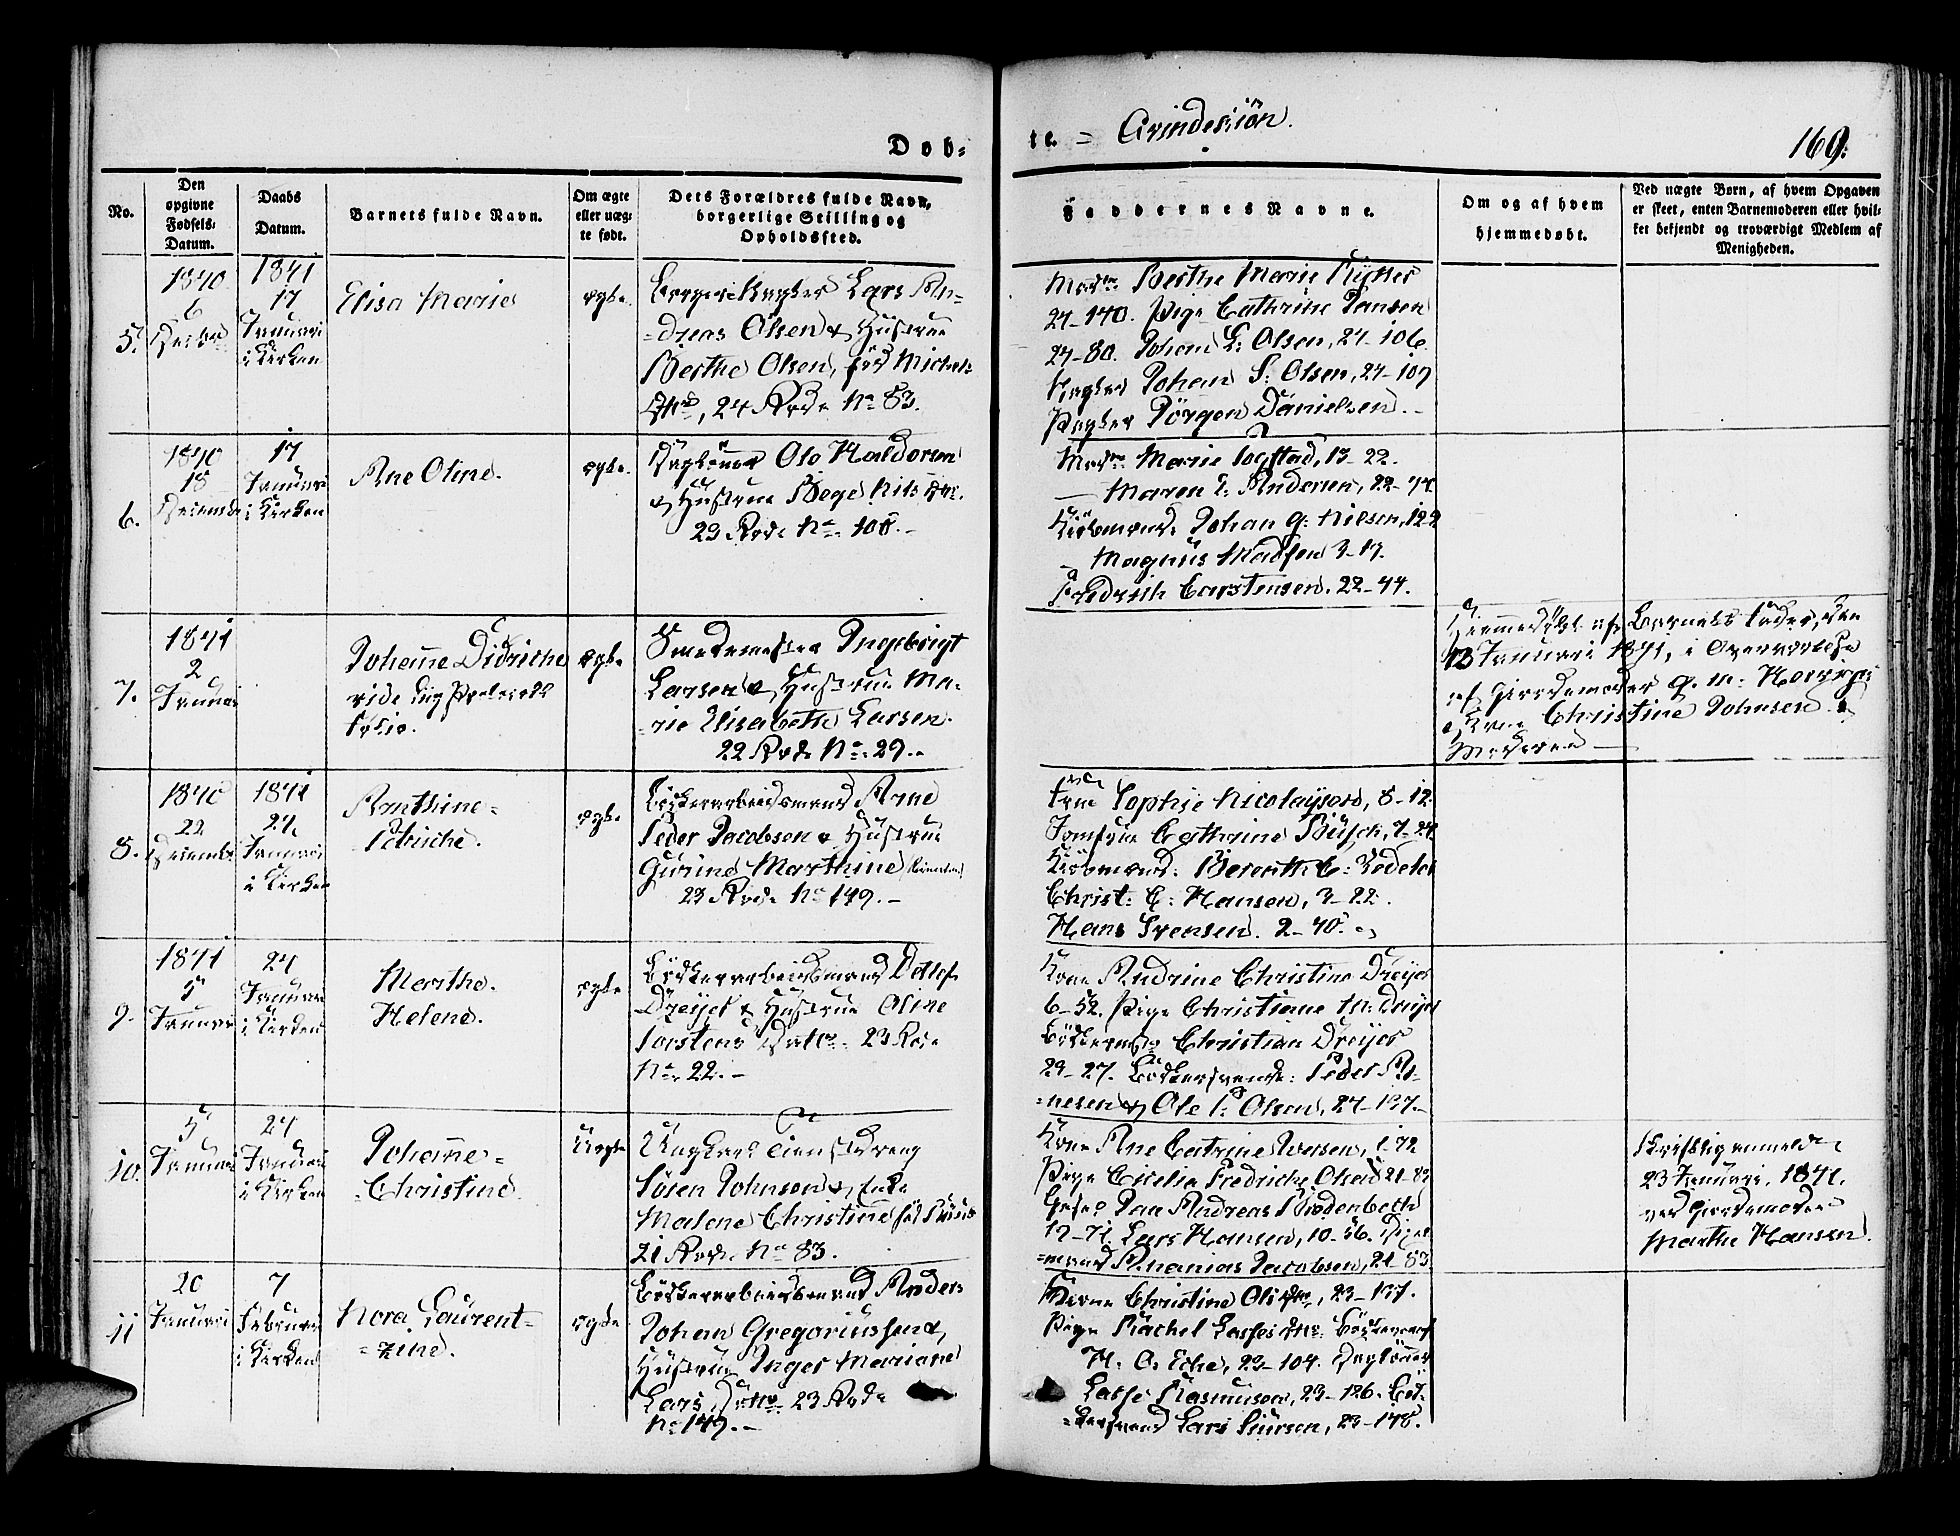 Døb-
te. = Qvindekiön.
169.
No.
Den
opgivne
Fødsels-
Datum.
Daabs
Datum.
Barnets fulde Navn.
Om ægte
eller uæg-
te født.
Dets Forældres fulde Navn,
borgerlige Stilling og
Opholdssted.
Faddernes Navne.
Om og af hvem
hjemmedøbt.
Ved uægte Børn, af hvem Opgaven
er skeet, enten Barnemoderen eller hvil-
ket bekjendt og troværdigt Medlem af
Menigheden.
5.
1840.
6
Decbr
1841
17
Januari
i Kirken
Elisa Marie
ægte.
Lars An-
=dreas Olsen & Hustrue
Berthe Olsen, fød Michels
Dtr, 24 Rode No 83.
Madm Berthe Marie
24-140. Pige Cathrine Jansen
24-80. Johan L: Olsen, 24-106.
Johan S: Olsen, 24-107
Jørgen Danielsen.
6.
1840
18
Decembr
17
Januari
i Kirken
Ane Oline.
ægte.
Ole Haldorsen
& Hustrue Nils Dtr.
23 Rode No. 108.
Madm Marie Logstad, 13-22.
Maren T: Andersen, 22-44
Kiøbmænd: Johan G: Nilsen, 122
Magnus Madsen 3-17.
Fredrich Carstensen. 22-44.
7.
1841
2
Januari
Johanne Didriche
ægte
Smedemester Ingebrigt
Larsen & Hustrue Ma-
=rie Elisabeth Larsen.
22 Rode No. 29.
Hiemmedøbt af Barnets Fader, den
13 Januari 1841, i Overværelse
af Giordemoder
Kone Christine Johnsen &
Moderen
8.
1840
22
Decembr
1841
24
Januari
i Kirken
Anthine=
Petriche.
ægte
Bødkerarbeidsmand Arne
Peder Jacobsen & Hustrue
Gurine Marthine
23 Rode No 149.
Frue Sophie Nicolaysen, 8-12.
Jomfrue Cathrine Büsch, 7-24
Kiøbmænd: Berenth C: Redeler
Christ: C: Hansen, 3-22.
Hans Svensen. 2-40.
9.
1841
5
Januari
24
Januari
i Kirken
Marthe.
Helene.
ægte
Bødkerarbeidsmand Detlef
Dreyer & Hustrue Oline
Torstens Datter. 23 Rode
No. 22.
Kone Andrine Christine Dreyer
6-52. Pige Christiane M: Dreyer
Christian Dreyer
23-27. Bødkersvende: Peder Ar-
=nesen & Ole P: Olsen, 24-137.
10.
5
Januari
24
Januari
i Kirken
Johanne=
=Christine
Uægte
Ungkarl Tienstdreng
Søren Johnson & Enke
Malene Christine
21 Rode. No 83.
Kone Ane Catrine Iversen,
Pige Cicelia Fredricke Olsen 21-83
Jan Andreas Rødenbeck
17-71. Lars Hansen, 10-56.
Ananias Jacobsen, 21-83.
Skriftlig anmeldt
23 Januari, 1841.
ved Giordemoder
Marthe Hansen.
11
20
Januari
7
Februari
i Kirken
Nora Laurent-
=zine.
ægte
Bødkerarbeidsmand Anders
Johan Gregoriussen &
Hustrue Inger Mariane
Lars Datter. 23 Rode
No 149.
Kone Christine Ols Dtr, 23-137.
Pige Rachel Lasses Dtr.
H. O. Eche, 23-104.
Lasse Rasmussen, 23-126. Bød-
=kersvend Lars Siursen, 23-148.